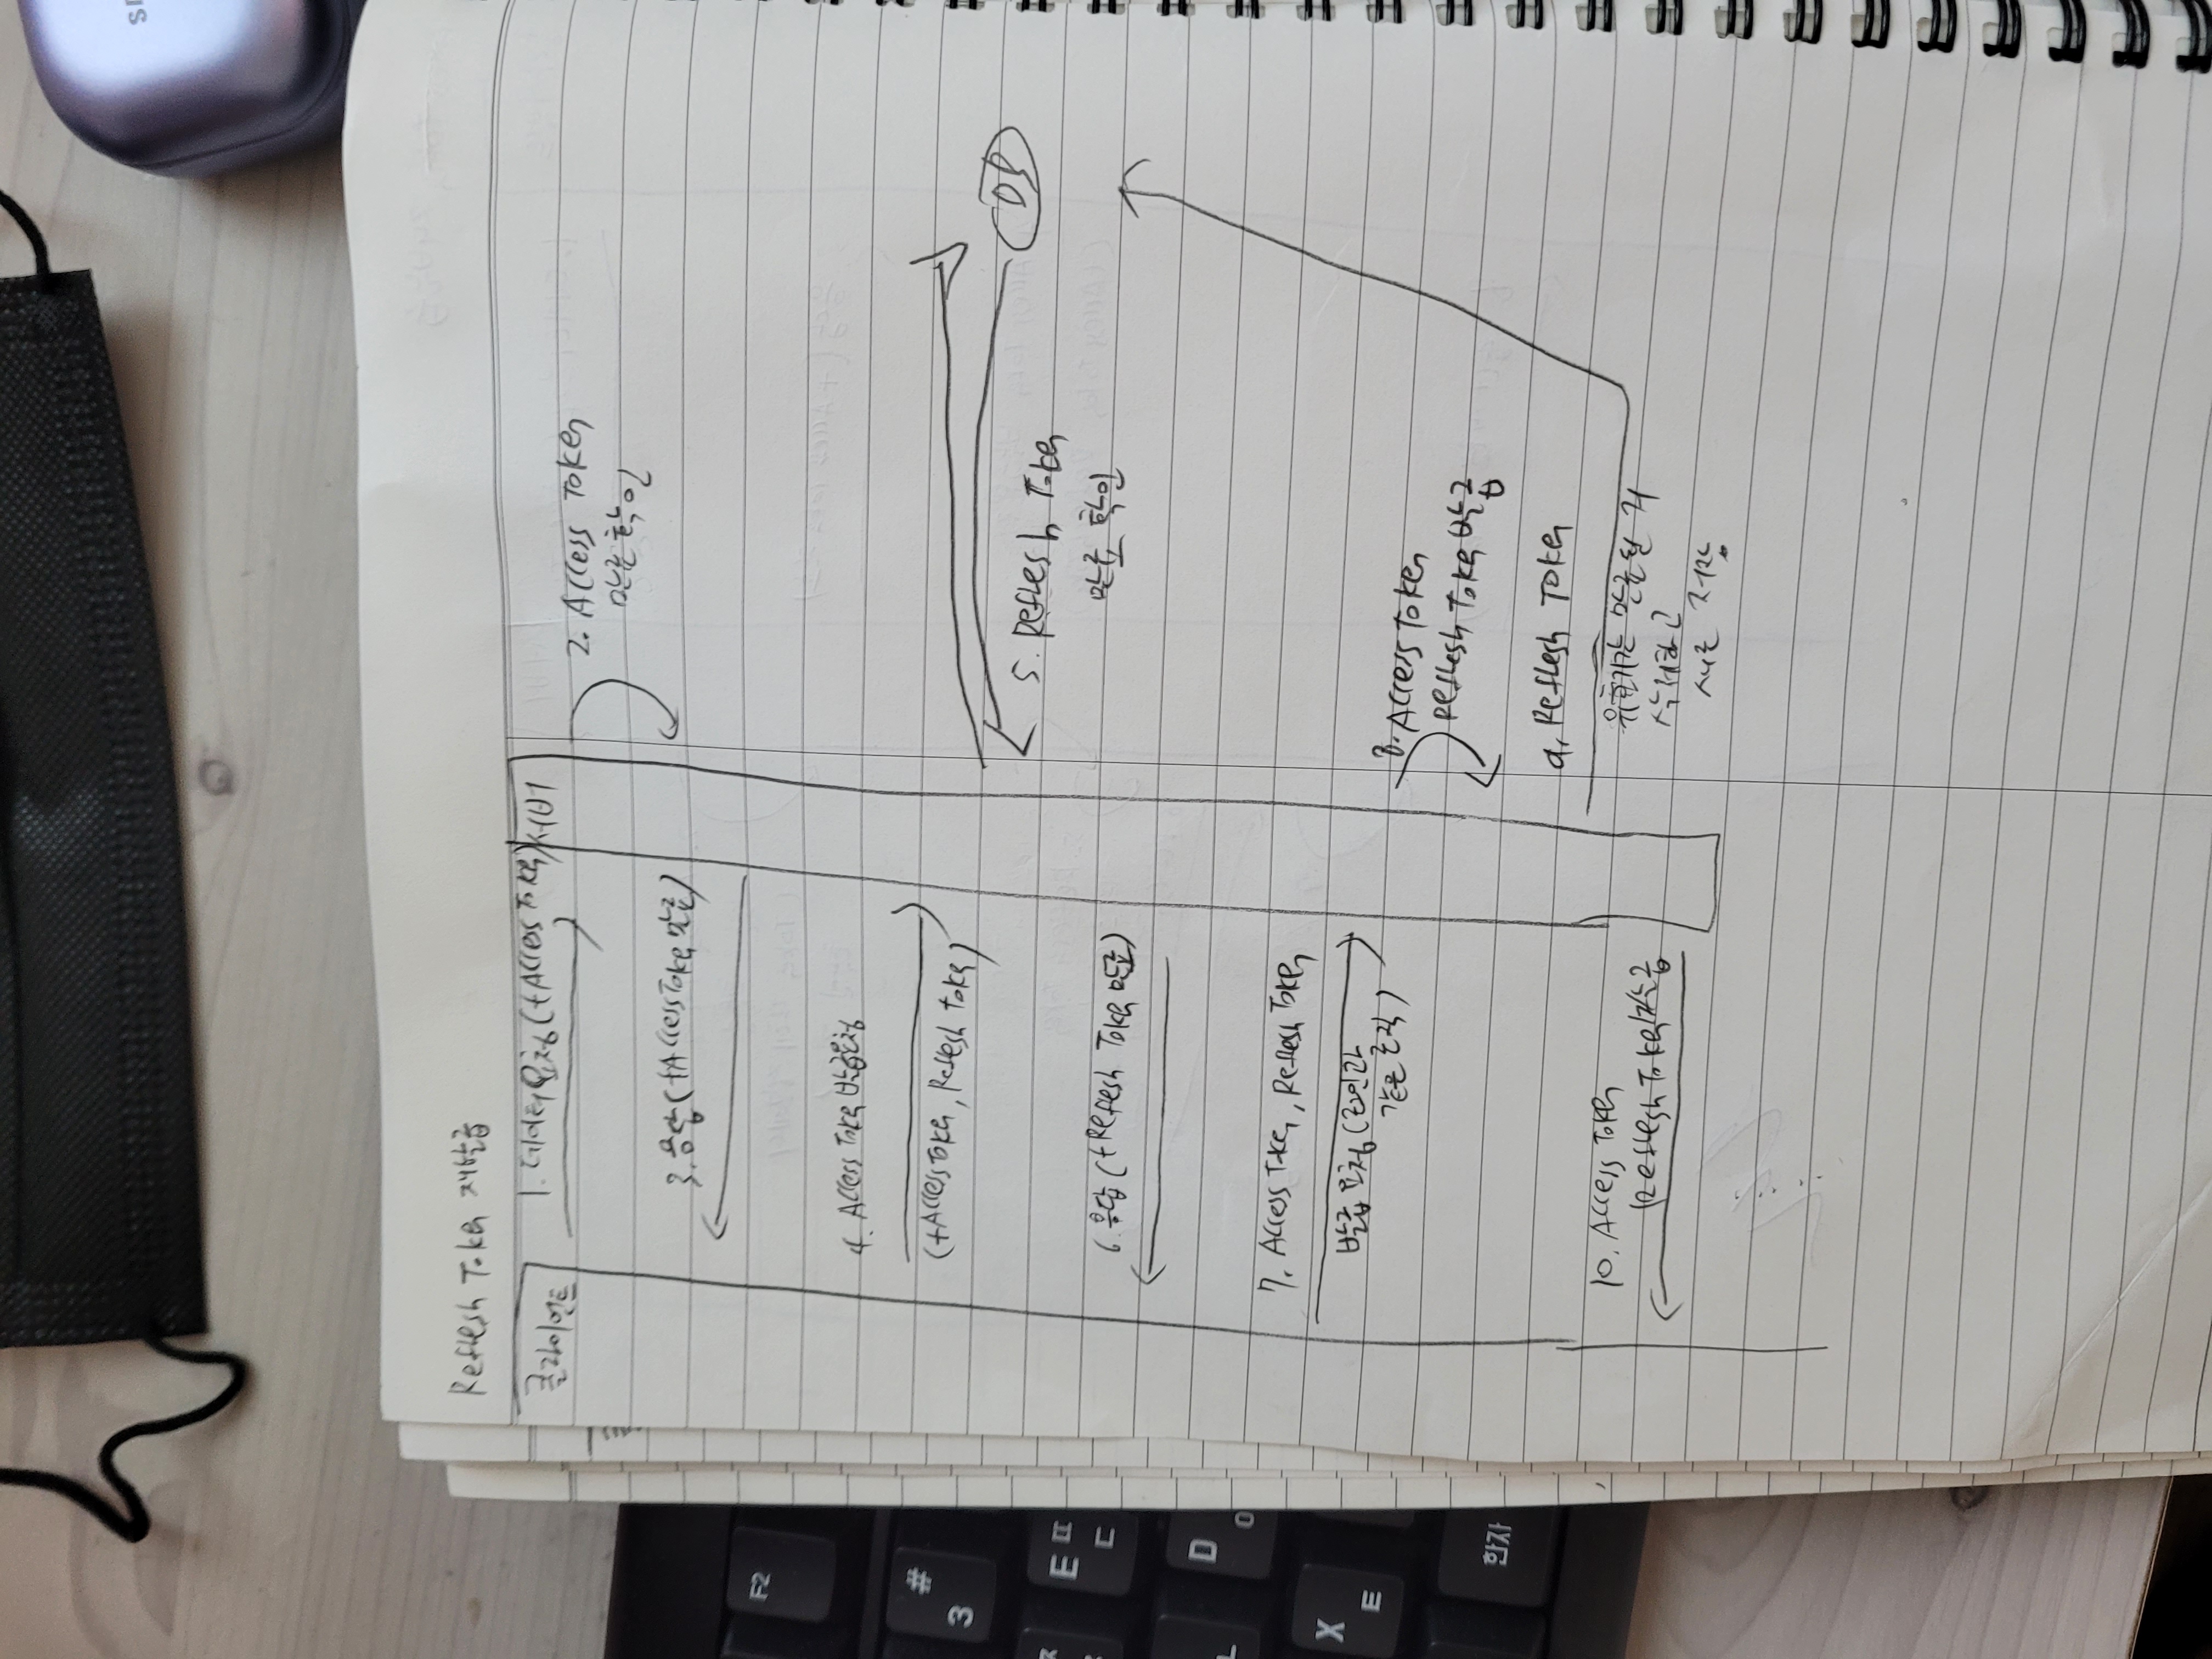 Reflesh Token 재발급
클라이언트
1. 데이터 요청 (+Access Token)
서버
2. Access Token
만료 확인
3. 응답 (+Access Token 만료)
4. Access Token 발급요청
(+Access Token, Reflesh token)
DB
5. Reflesh Token
만료 확인
6. 응답 (+Reflesh Token 만료)
7. Access Token, Reflesh Token
발급 요청 (로그인과
같은 로직)
8. Access Token
Reflesh Token 발급
9. Reflesh Token
유효기간 만료된 거
삭제하고
새로 저장
10. Access Token
Reflesh Token
F2
#
3
E ㄸ
ㄷ
D
X
ㅌ
한자